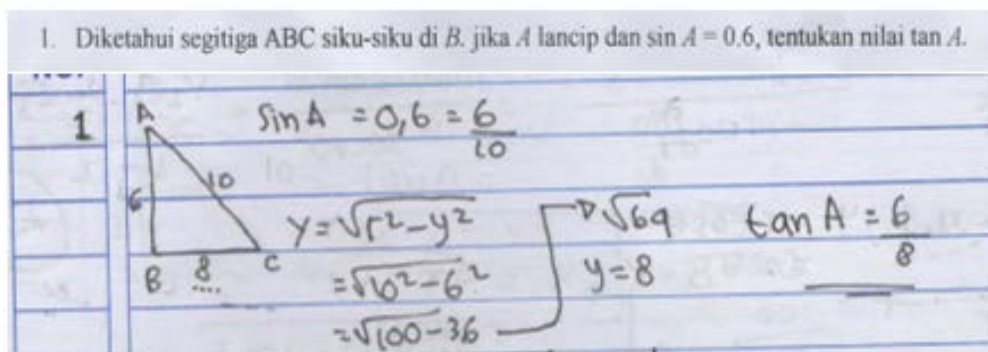 1. Diketahui segitiga ABC siku-siku di B. jika A lancip dan sin A = 0.6, tentukan nilai tan A.
1
A
6
10
B
8
C
Sin A = 0,6 = 6/10
Y = √r² - y²
= √10² - 6²
= √100 - 36
√64
y = 8
tan A = 6/8